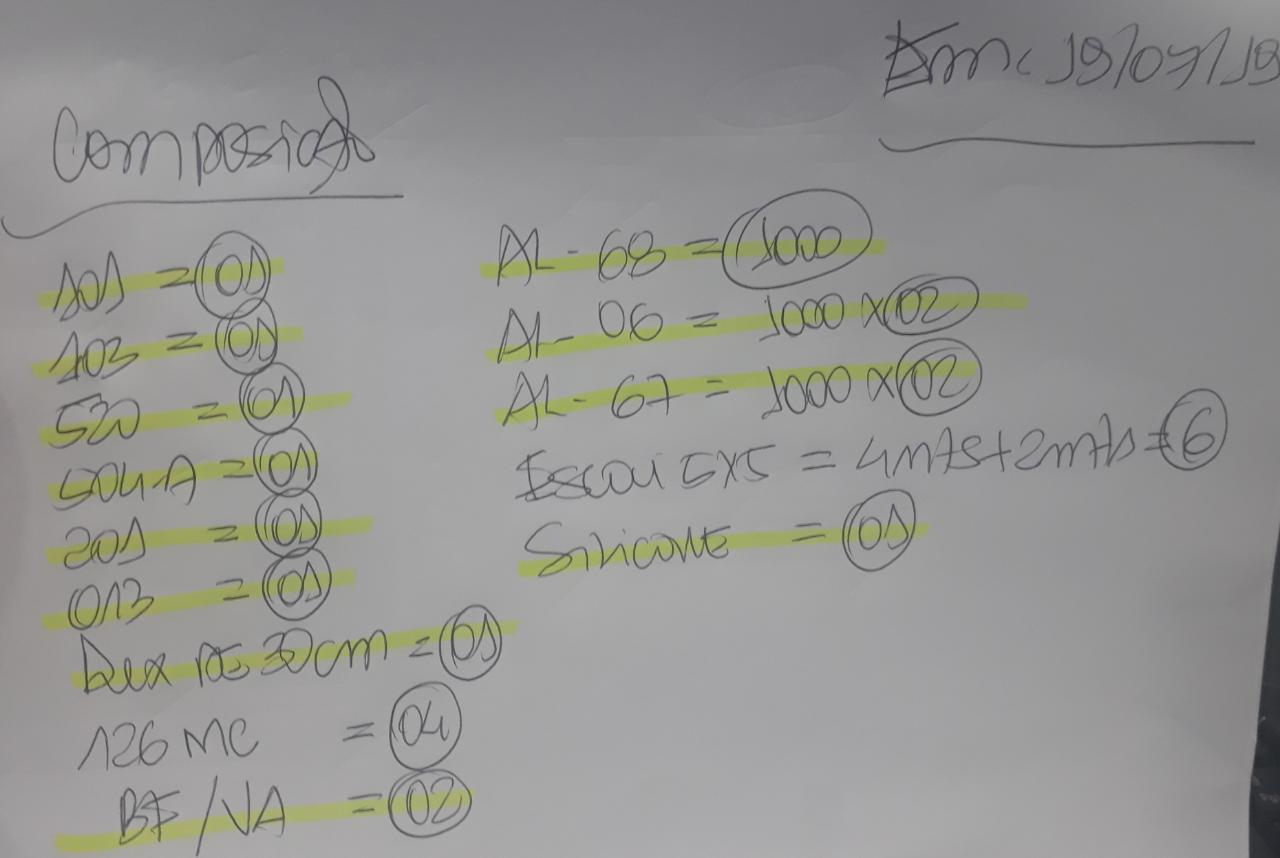 Em: 19/07/19
Composição
101 = 01
103 = 01
520 = 01
504-A = 01
201 = 01
013 = 01
30cm = 01
126 MC = 04
BF/VA = 02
AL - 68 = 1000
AL - 06 = 1000 x 02
AL - 67 = 1000 x 02
5x5 = 4mts + 2mts = 6
Silicone = 01